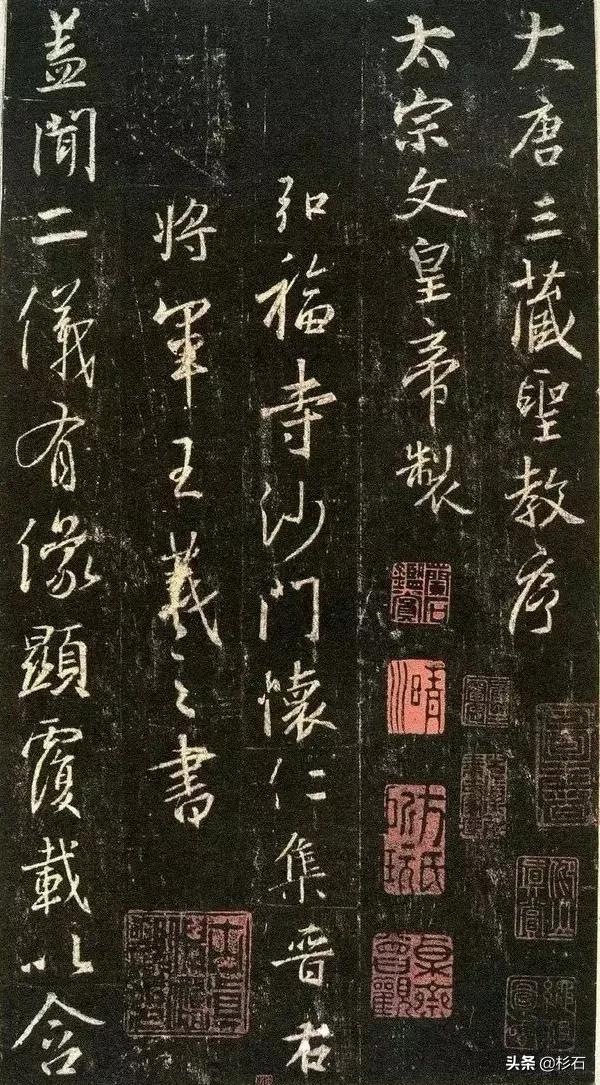 大唐三藏聖教序
太宗文皇帝製
弘福寺沙門懷仁集晉右
將軍王羲之書
蓋聞二儀有像顯覆載以含
蘭石鑑賞
头条 @杉石